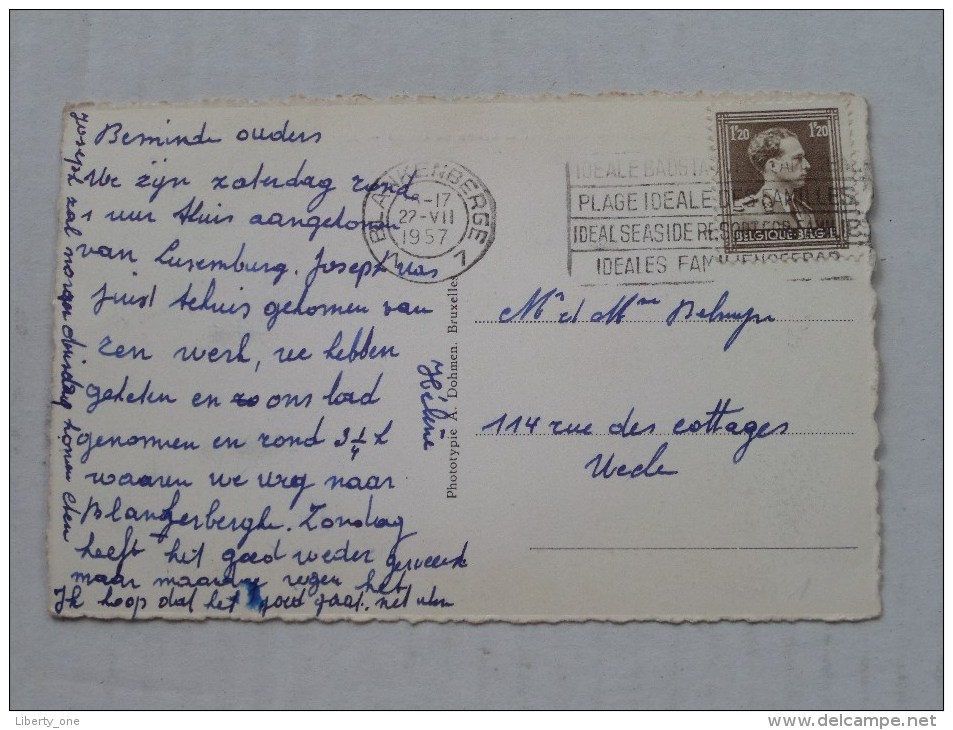 Beminde ouders
We zijn zaterdag rond
1 uur thuis aangekomen
van Luxemburg. Joseph was
juist tehuis gekomen van
zen werk, we hebben
geketen en zo ons bad
genomen en rond 3 1/4 h
waaren we weg naar
Blangerberghe. Zondag
heeft het goed weder geweest
maar maandag regen het
Ik hoop dat het goed gaat. met
Joseph zal morgen dinsdag komen eten
Hélène
Phototypie A. Dohmen. Bruxelles
BLANKENBERGE
-17
22-VII
1957
1 1
IDEALE BADSTA
PLAGE IDEALE DES FAMILLES
IDEAL SEASIDE RESORT FOR FAMI
IDEALES FAMILIENSEEBAD
1'20 1'20
BELGIQUE-BELGIE
Mr et Mme
114 rue des cottages
Uccle
Liberty_one
www.delcampe.net